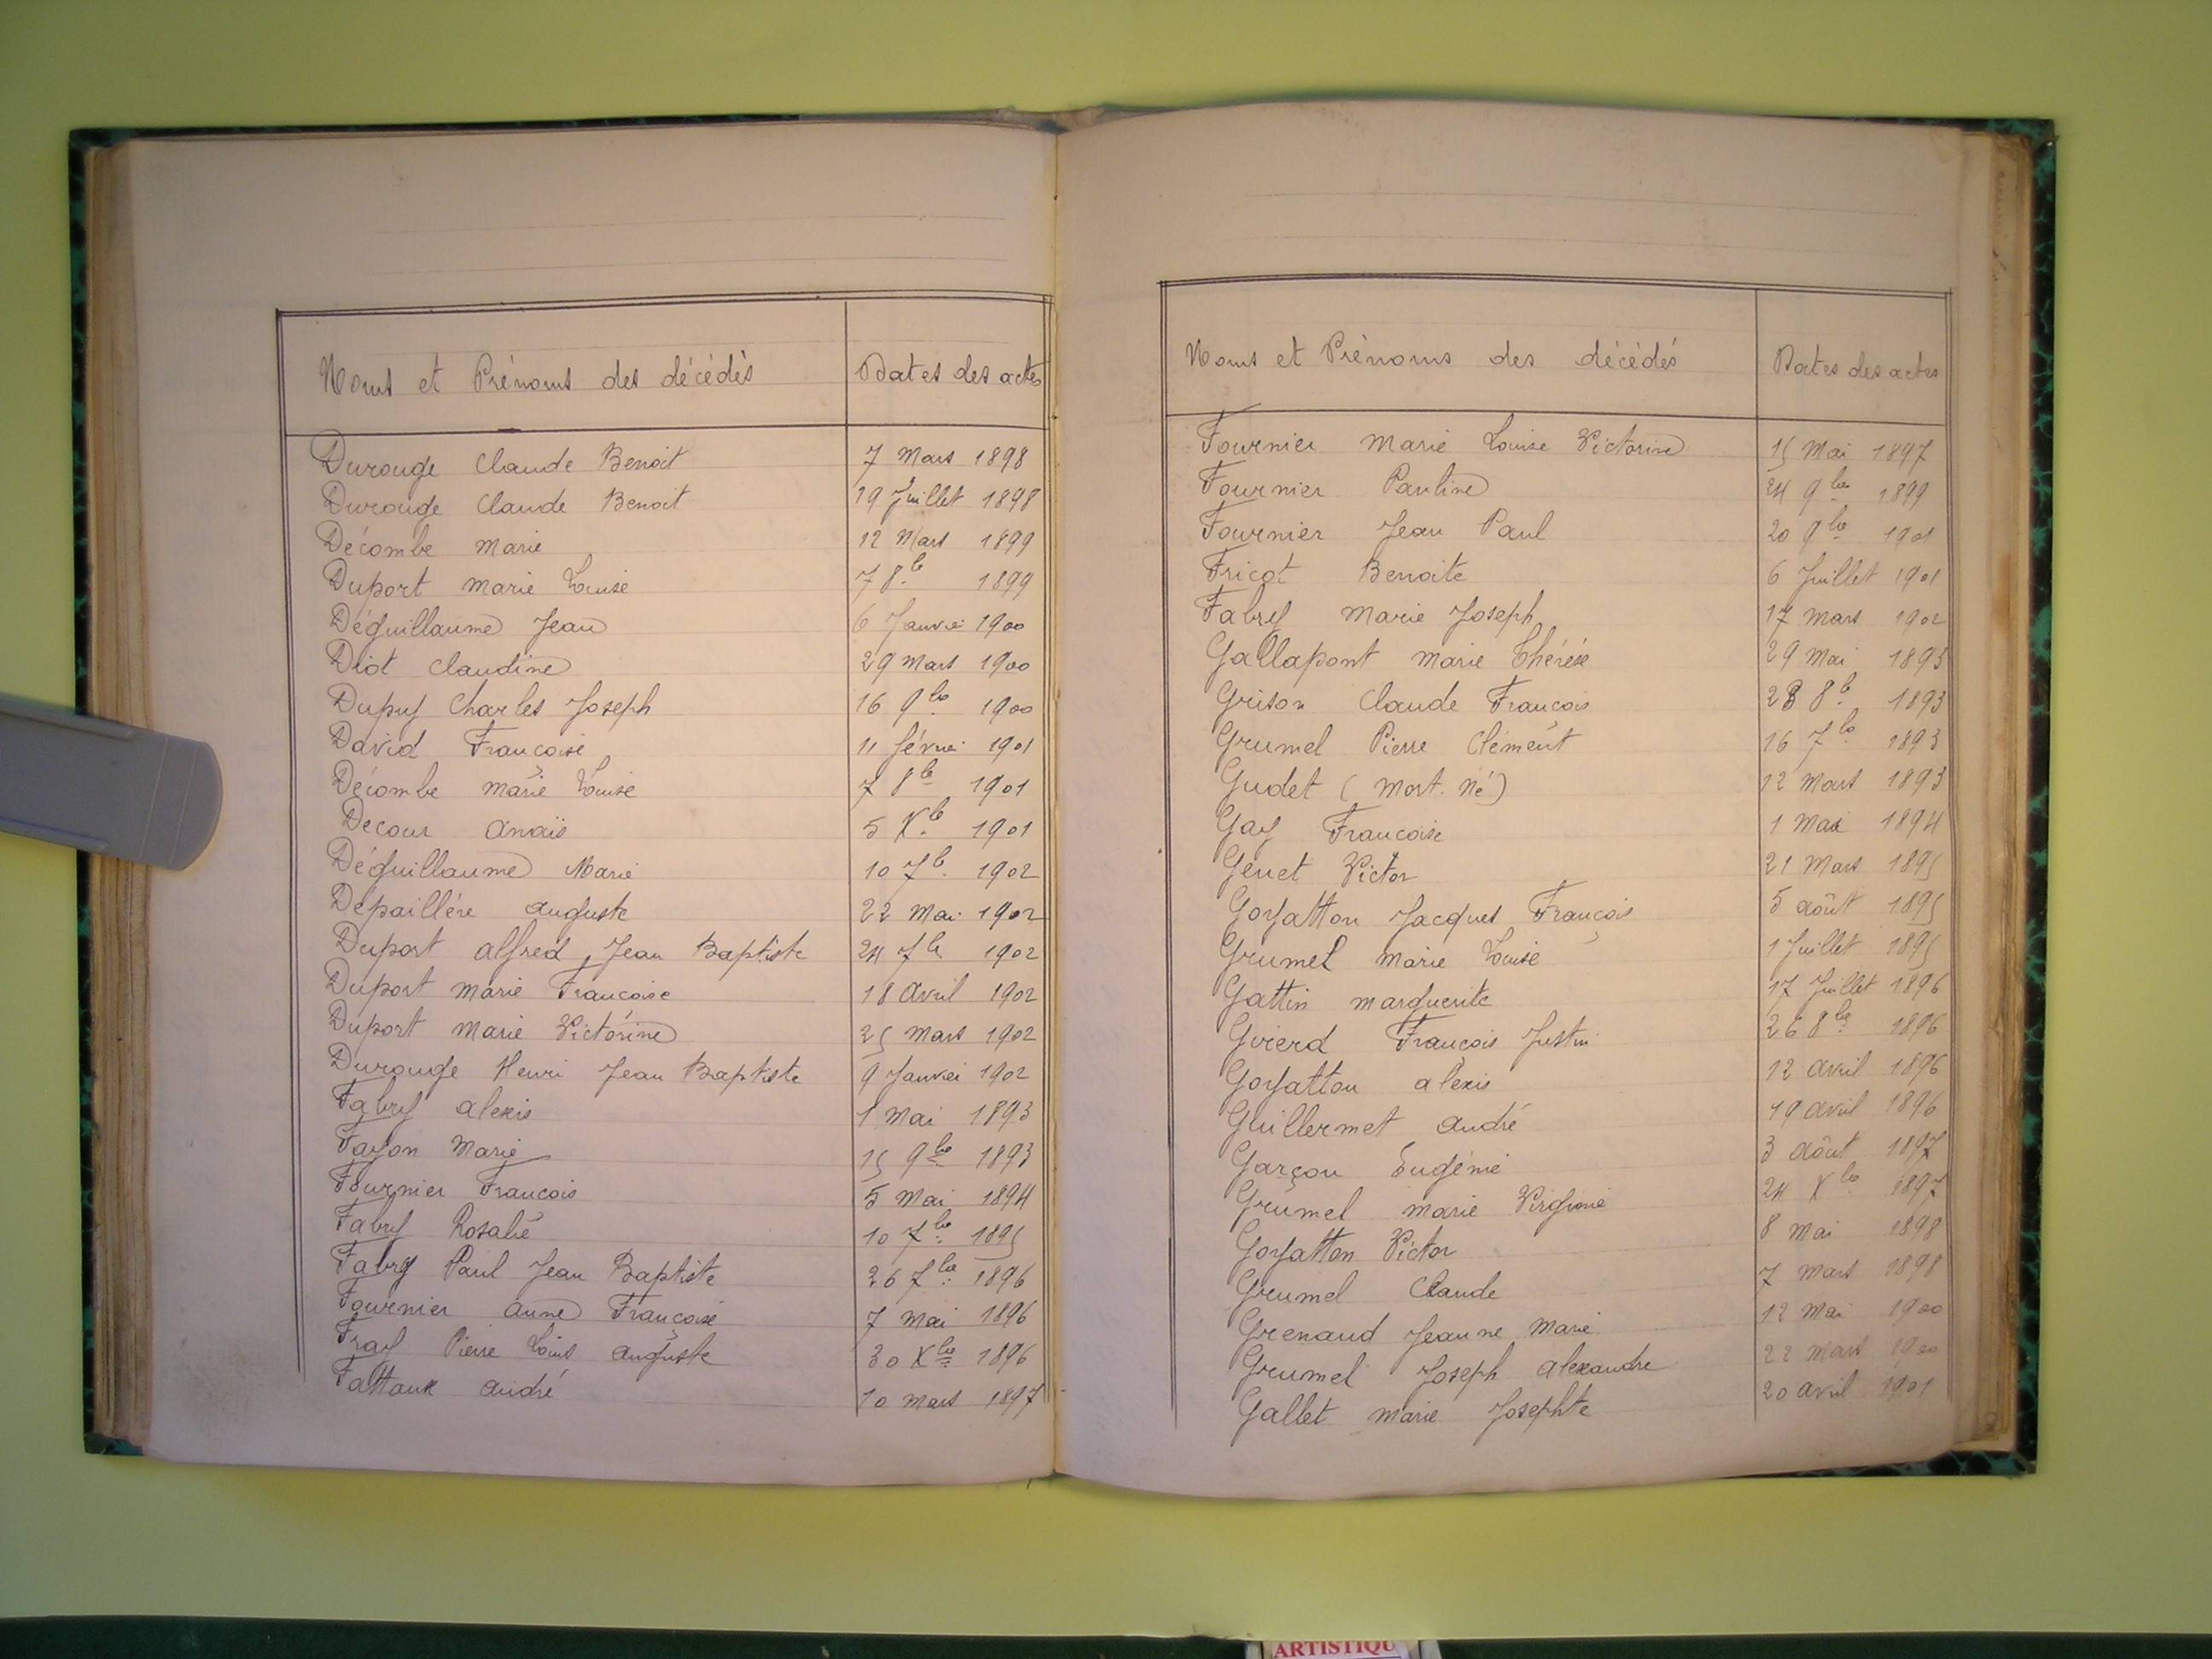 Noms et Prénoms des décédès Dates des actes
Durouge Claude Benoit 7 Mars 1898
Durouge Claude Benoit 19 Juillet 1898
Décombe Marie 12 Mars 1899
Duport Marie Louise 7 8.b 1899
Déguillaume Jean 6 Janvei 1900
Diot Claudine 29 Mars 1900
Dupuy Charles Joseph 16 9bre 1900
David Françoise 11 févrei 1901
Décombe Marie Louise 7 8b 1901
Decour Anaïs 5 Xb 1901
Déguillaume Marie 10 7b. 1902
Dépaillére Auguste 22 Mai 1902
Duport Alfred, Jean Baptiste 24 7b 1902
Duport Marie Françoise 18 Avril 1902
Duport Marie Victorine 25 Mars 1902
Durouge Henri Jean Baptiste 9 Janvei 1902
Fabry Alexis 1 Mai 1893
Fayon Marie 15 9bre 1893
Fournier François 5 Mai 1894
Fabry Rosalie 10 7bre 1895
Fabry Paul Jean Baptiste 26 7bre 1896
Fournier Anne Françoise 7 Mai 1896
Fray Pierre Louis Auguste 30 Xbre 1896
Fattaux André 10 Mars 1897
Noms et Prénoms des décédés Dates des actes
Fournier Marie Louise Victorine 15 Mai 1897
Fournier Pauline 24 9bre 1899
Fournier Jean Paul 20 9bre 1901
Fricot Benoite 6 Juillet 1901
Fabry Marie Joseph 17 Mars 1902
Gallapont Marie Thérése 29 Mai 1893
Grison Claude François 8b 1893
Grumel Pierre Clément 16 7bre 1893
Gudet (Mort. Né) 12 Mars 1893
Gay Françoise 1 Mai 1894
Genet Victor 21 Mars 1895
Goyatton Jacques François 5 Août 1895
Grumel Marie Louise 1 Juillet 1895
Gattin Marguerite 17 Juillet 1896
Girerd François Justin 26 8bre 1896
Goyatton Alexis 12 Avril 1896
Guillermet André 19 Avril 1896
Garçon Eugénie 3 Août 1897
Grumel Marie Virginie 24 Xbre 1897
Goyatton Victor 8 Mai 1898
Grumel Claude 7 Mars 1898
Grenaud Jeanne Marie 12 Mai 1900
Grumel Joseph Alexandre 22 Mars 1900
Gallet Marie Josephte 20 Avril 1901
ARTISTIQU